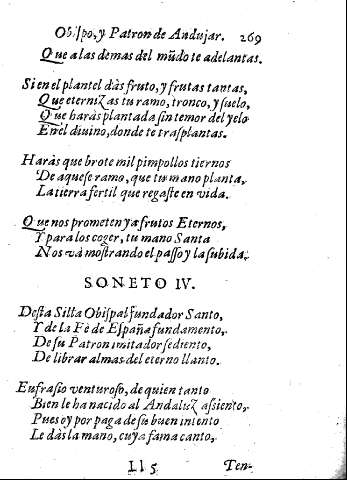 Obispo, y Patron de Andujar. 269
Que a las demas del mũdo te adelantas.
Si en el plantel dàs fruto, y frutas tantas,
Que eternizas tu ramo, tronco, y suelo,
Que haràs plantada sin temor del yelo
En él diuino, donde te trasplantas.
Haràs que brote mil pimpollos tiernos
De aquese ramo, que tu mano planta,
La tierra fertil que regaste en vida.
Que nos prometen ya frutos Eternos,
Y para los coger, tu mano Santa
Nos và mostrando el passo y la subida.
SONETO IV.
Desta Silla Obispal fundador Santo,
Y de la Fè de España fundamento,
De su Patron imitador sediento,
De librar almas del eterno llanto.
Eufrasio venturoso, de quien tanto
Bien le ha nacido al Andaluz assiento,
Pues oy por paga de su buen intento
Le dàs la mano, cuya fama canto,
Ll5 Ten-